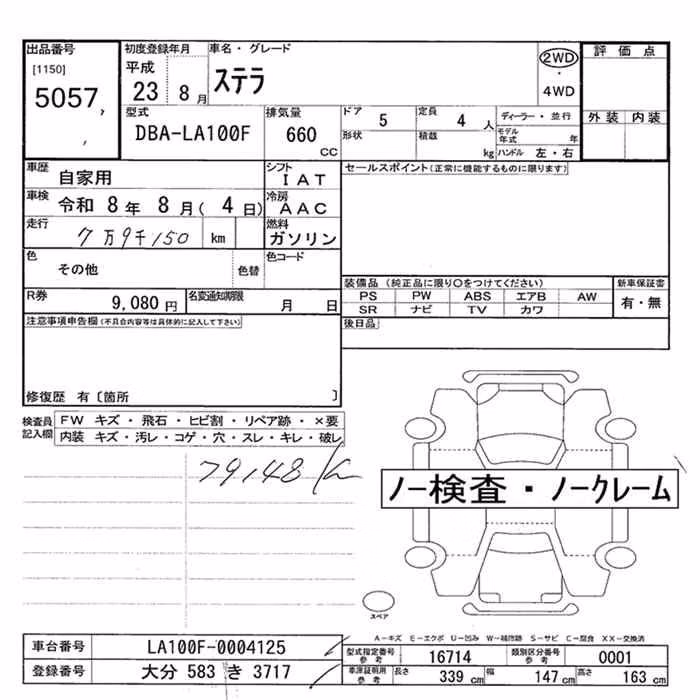 出品番号 初度登録年月 車名・グレード 2WD 評価点
[1150] 平成 ステラ ・
5057, 23 8月 4WD
, 型式 排気量 ドア 5 定員 4人 ディーラー・並行 外装 内装
DBA-LA100F 660 CC 形状 積載 kg モデル年式 年
ハンドル 左・右
車歴 自家用 シフト IAT セールスポイント(正常に機能するものに限ります)
車検 令和 8年 8月( 4日) 冷房 AAC
走行 7万9千150 km 燃料 ガソリン
色 その他 色替 色コード
装備品 (純正品に限り○をつけてください) 新車保証書
R券 9,080円 名変通知期限 月 日 PS PW ABS エアB AW 有・無
SR ナビ TV カワ
注意事項申告欄(不具合内容等は具体的に記入して下さい) 後日品
修復歴 有〔箇所 〕
検査員記入欄 FW キズ・飛石・ヒビ割・リペア跡・×要
内装 キズ・汚レ・コゲ・穴・スレ・キレ・破レ
79148 km
ノー検査・ノークレーム
スペア
A-キズ E-エクボ U-凹み W-補修跡 S-サビ C-腐食 XX-交換済
車台番号 LA100F-0004125 型式指定番号 参考 16714 類別区分番号 参考 0001
登録番号 大分 583 き 3717 車庫証明用 参考 長さ 339 cm 幅 147 cm 高さ 163 cm